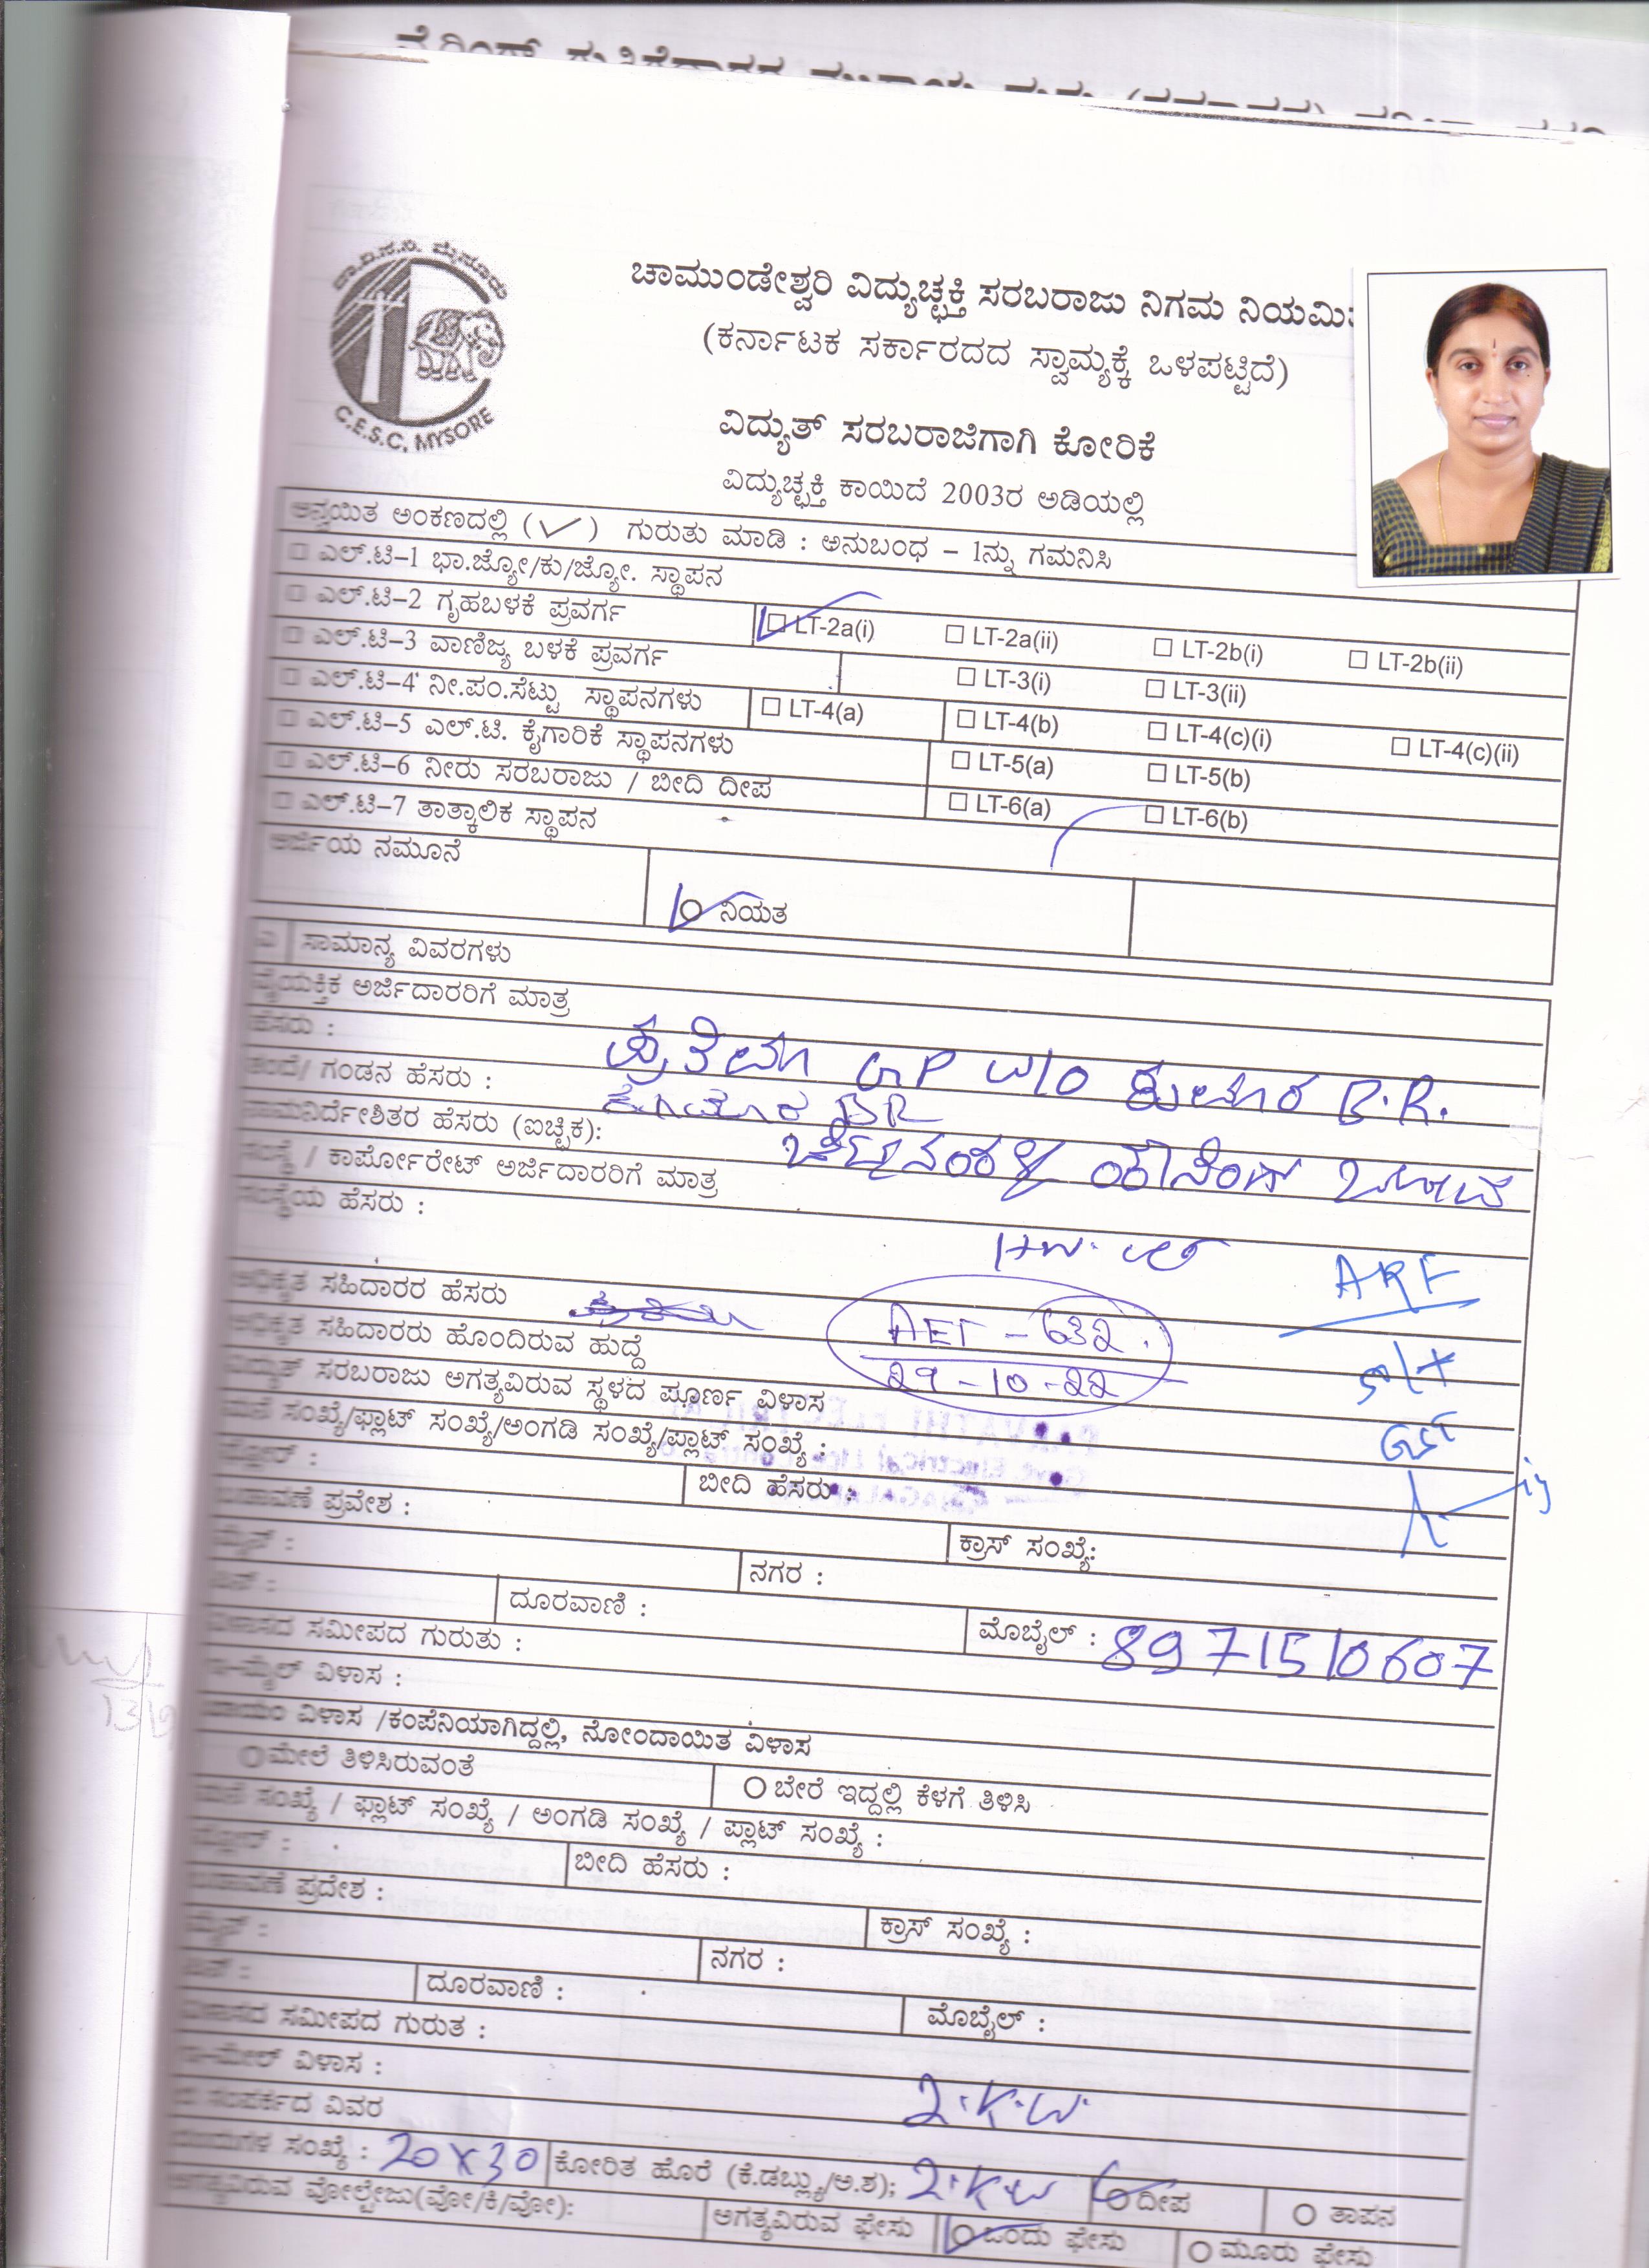 ಚಾ.ವಿ.ಸ.ನಿ. ಮೈಸೂರು
C.E.S.C, MYSORE
ಚಾಮುಂಡೇಶ್ವರಿ ವಿದ್ಯುಚ್ಛಕ್ತಿ ಸರಬರಾಜು ನಿಗಮ
(ಕರ್ನಾಟಕ ಸರ್ಕಾರದದ ಸ್ವಾಮ್ಯಕ್ಕೆ ಒಳಪಟ್ಟಿದೆ)
ವಿದ್ಯುತ್ ಸರಬರಾಜಿಗಾಗಿ ಕೋರಿಕೆ
ವಿದ್ಯುಚ್ಛಕ್ತಿ ಕಾಯಿದೆ 2003ರ ಅಡಿಯಲ್ಲಿ
ಅನ್ವಯಿತ ಅಂಕಣದಲ್ಲಿ (✓) ಗುರುತು ಮಾಡಿ : ಅನುಬಂಧ – 1ನ್ನು ಗಮನಿಸಿ
☐ ಎಲ್.ಟಿ–1 ಭಾ.ಜ್ಯೋ/ಕು/ಜ್ಯೋ. ಸ್ಥಾಪನ
☐ ಎಲ್.ಟಿ–2 ಗೃಹಬಳಕೆ ಪ್ರವರ್ಗ ☐ LT-2a(i) ☐ LT-2a(ii) ☐ LT-2b(i) ☐ LT-2b(ii)
☐ ಎಲ್.ಟಿ–3 ವಾಣಿಜ್ಯ ಬಳಕೆ ಪ್ರವರ್ಗ ☐ LT-3(i) ☐ LT-3(ii)
☐ ಎಲ್.ಟಿ–4 ನೀ.ಪಂ.ಸೆಟ್ಟು ಸ್ಥಾಪನಗಳು ☐ LT-4(a) ☐ LT-4(b) ☐ LT-4(c)(i) ☐ LT-4(c)(ii)
☐ ಎಲ್.ಟಿ–5 ಎಲ್.ಟಿ. ಕೈಗಾರಿಕೆ ಸ್ಥಾಪನಗಳು ☐ LT-5(a) ☐ LT-5(b)
☐ ಎಲ್.ಟಿ–6 ನೀರು ಸರಬರಾಜು / ಬೀದಿ ದೀಪ ☐ LT-6(a) ☐ LT-6(b)
☐ ಎಲ್.ಟಿ–7 ತಾತ್ಕಾಲಿಕ ಸ್ಥಾಪನ
ಅರ್ಜಿಯ ನಮೂನೆ
ನಿಯತ
ಸಾಮಾನ್ಯ ವಿವರಗಳು
ವೈಯಕ್ತಿಕ ಅರ್ಜಿದಾರರಿಗೆ ಮಾತ್ರ
ಹೆಸರು : ಪ್ರತಿಮಾ GP W/O ಕುಮಾರ B.R.
ತಂದೆ/ ಗಂಡನ ಹೆಸರು : ಕುಮಾರ BR
ನಾಮನಿರ್ದೇಶಿತರ ಹೆಸರು (ಐಚ್ಛಿಕ):
ಸಂಸ್ಥೆ / ಕಾರ್ಪೋರೇಟ್ ಅರ್ಜಿದಾರರಿಗೆ ಮಾತ್ರ
ಸಂಸ್ಥೆಯ ಹೆಸರು :
ARF
ಅಧಿಕೃತ ಸಹಿದಾರರ ಹೆಸರು
AET – 632
ಅಧಿಕೃತ ಸಹಿದಾರರು ಹೊಂದಿರುವ ಹುದ್ದೆ
29-10-22
ವಿದ್ಯುತ್ ಸರಬರಾಜು ಅಗತ್ಯವಿರುವ ಸ್ಥಳದ ಪೂರ್ಣ ವಿಳಾಸ
ಮನೆ ಸಂಖ್ಯೆ/ಫ್ಲಾಟ್ ಸಂಖ್ಯೆ/ಅಂಗಡಿ ಸಂಖ್ಯೆ/ಪ್ಲಾಟ್ ಸಂಖ್ಯೆ :
GST
ಫ್ಲೋರ್ : ಬೀದಿ ಹೆಸರು :
ಬಡಾವಣೆ ಪ್ರವೇಶ : ಕ್ರಾಸ್ ಸಂಖ್ಯೆ:
ಮೈನ್ : ನಗರ :
ಪಿನ್ : ದೂರವಾಣಿ : ಮೊಬೈಲ್ : 8971510607
ವಿಳಾಸದ ಸಮೀಪದ ಗುರುತು :
ಇ–ಮೈಲ್ ವಿಳಾಸ :
ಖಾಯಂ ವಿಳಾಸ /ಕಂಪೆನಿಯಾಗಿದ್ದಲ್ಲಿ, ನೋಂದಾಯಿತ ವಿಳಾಸ
ಮೇಲೆ ತಿಳಿಸಿರುವಂತೆ ಬೇರೆ ಇದ್ದಲ್ಲಿ ಕೆಳಗೆ ತಿಳಿಸಿ
ಮನೆ ಸಂಖ್ಯೆ / ಫ್ಲಾಟ್ ಸಂಖ್ಯೆ / ಅಂಗಡಿ ಸಂಖ್ಯೆ / ಪ್ಲಾಟ್ ಸಂಖ್ಯೆ :
ಫ್ಲೋರ್ : ಬೀದಿ ಹೆಸರು :
ಬಡಾವಣೆ ಪ್ರದೇಶ : ಕ್ರಾಸ್ ಸಂಖ್ಯೆ :
ಮೈನ್ : ನಗರ :
ಪಿನ್ : ದೂರವಾಣಿ : ಮೊಬೈಲ್ :
ವಿಳಾಸದ ಸಮೀಪದ ಗುರುತ :
ಇ–ಮೇಲ್ ವಿಳಾಸ :
ಸಂಪರ್ಕದ ವಿವರ 2.K.W.
ಸಂಖ್ಯೆ : 20x30 ಕೋರಿತ ಹೊರೆ (ಕೆ.ಡಬ್ಲ್ಯು/ಅ.ಶ); 2.KW ದೀಪ ತಾಪನ
ಅಗತ್ಯವಿರುವ ವೋಲ್ಟೇಜು(ವೋ/ಕಿ/ವೋ): ಅಗತ್ಯವಿರುವ ಫೇಸು ಒಂದು ಫೇಸು ಮೂರು ಫೇಸು